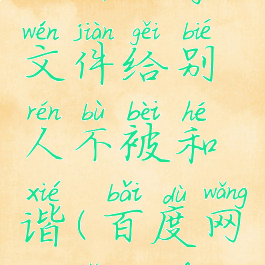 wén jiàn gěi bié
文件给别
rén bù bèi hé
人不被和
xié bǎi dù wǎng
谐(百度网